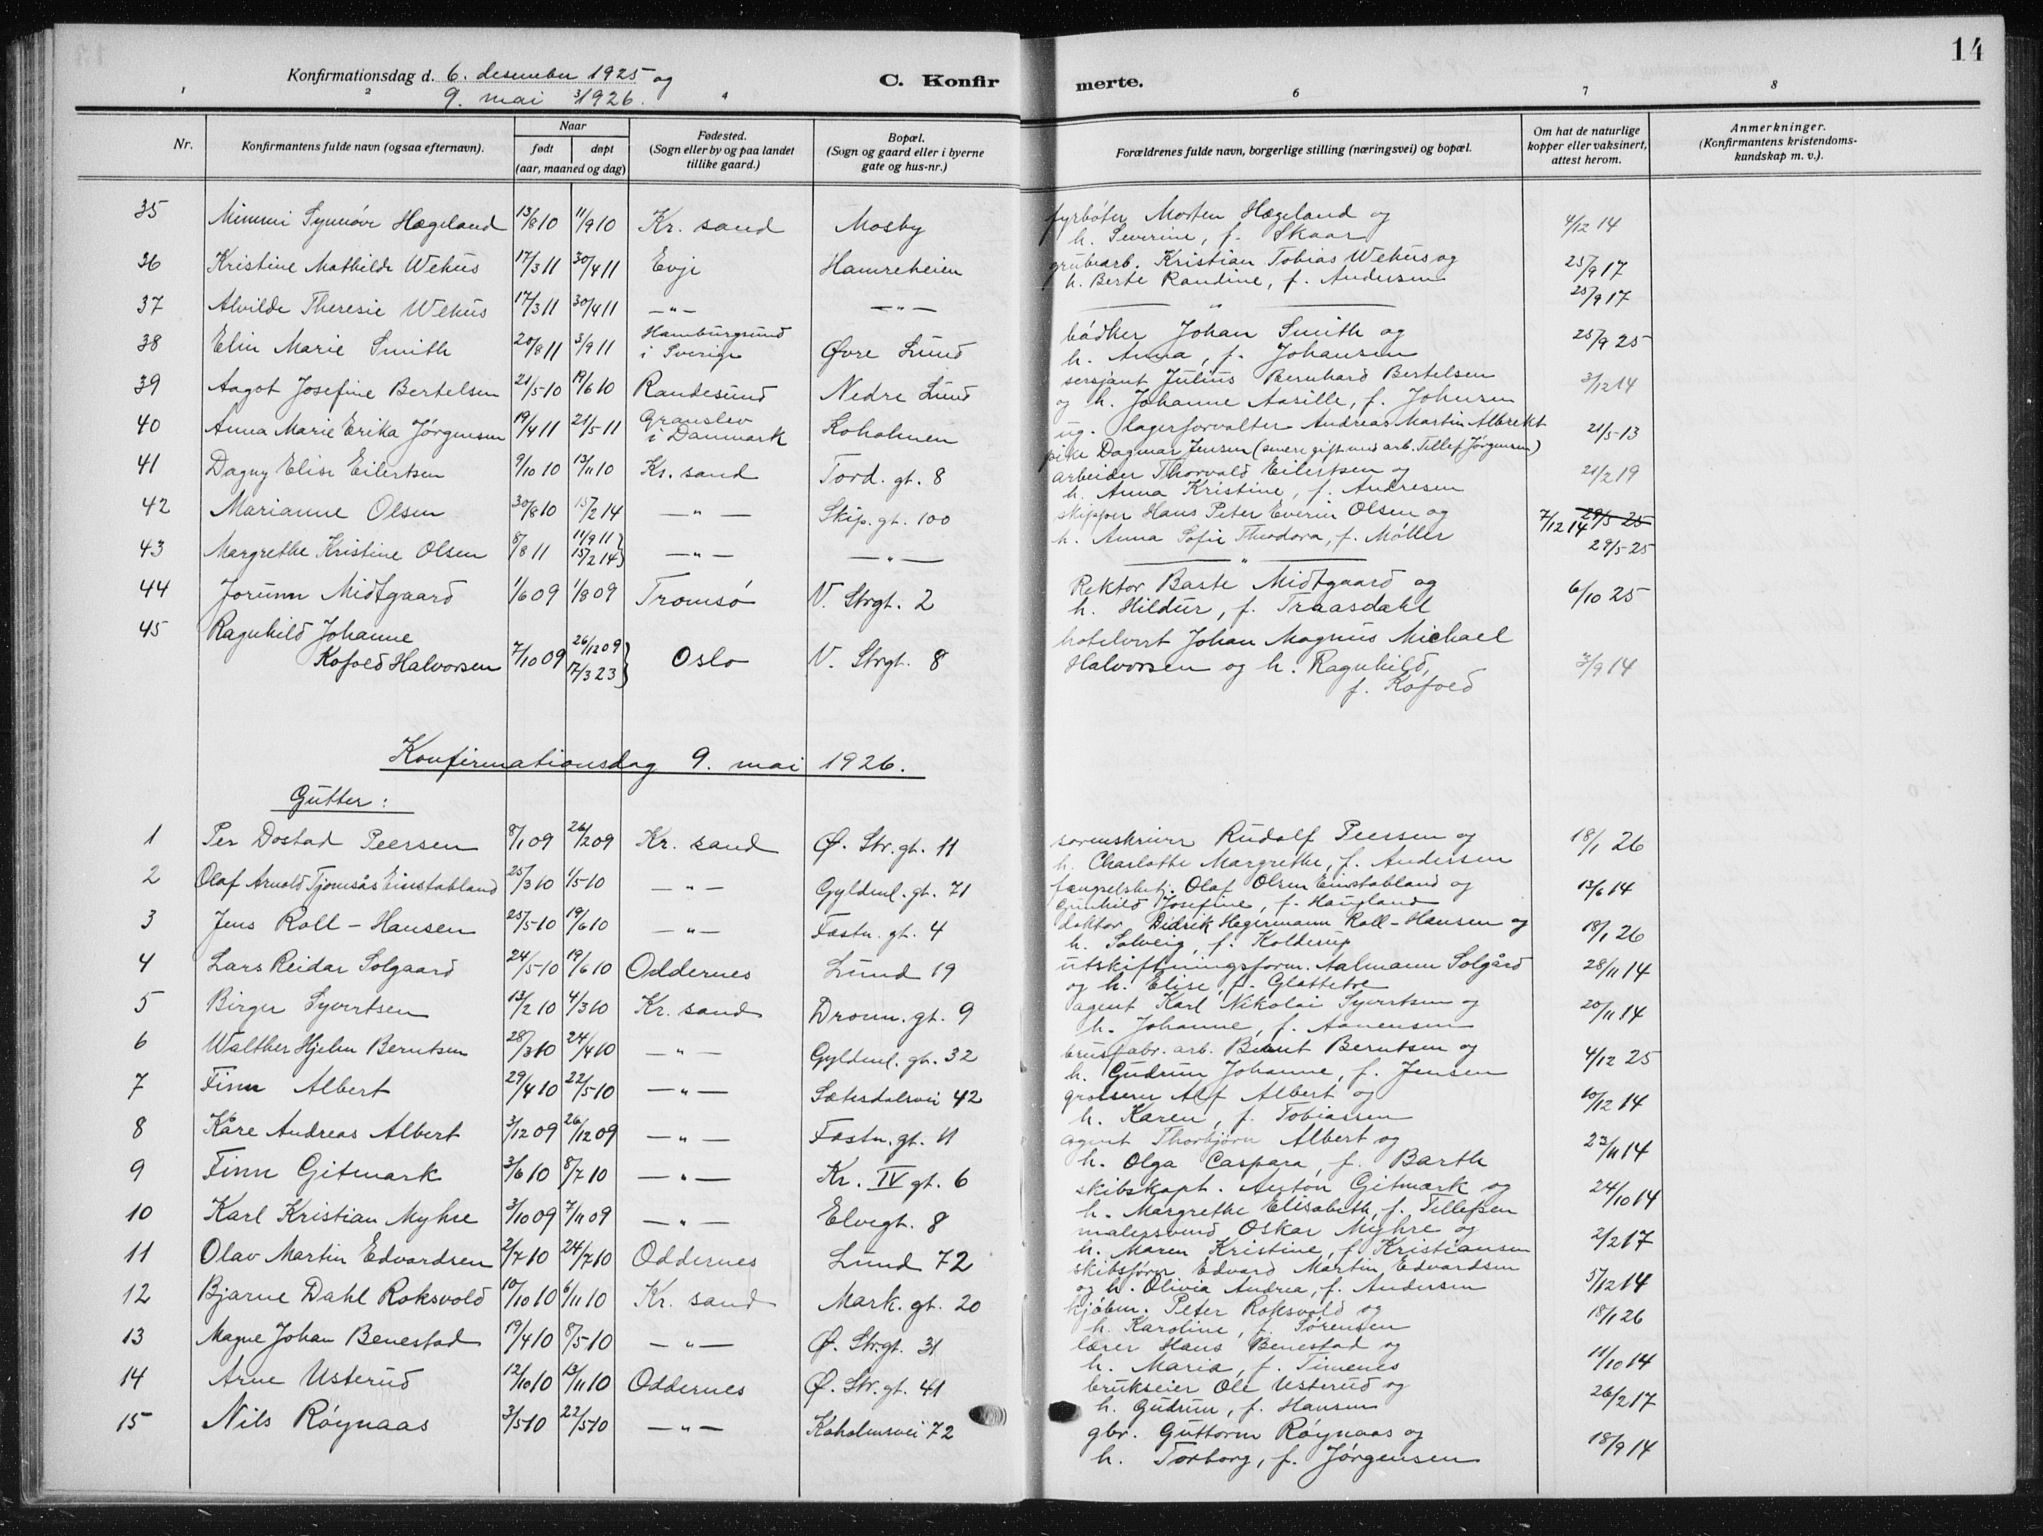 14
Konfirmationsdag d. 6. desember 1925 og
9. mai 1926.
C. Konfir merte.
1 2 4 6 7 8
Nr.
Konfirmantens fulde navn (ogsaa efternavn).
Naar
født døpt
(aar, maaned og dag)
Fødested.
(Sogn eller by og paa landet
tillike gaard.)
Bopæl.
(Sogn og gaard eller i byerne
gate og hus-nr.)
Forældrenes fulde navn, borgerlige stilling (næringsvei) og bopæl.
Om hat de naturlige
kopper eller vaksinert,
attest herom.
Anmerkninger.
(Konfirmantens kristendoms-
kundskap m. v.).
35 Mimmi Synnøve Hægeland 13/8 10 11/9 10 Kr. sand Mosby fyrbøter Morten Hægeland og 4/12 14
h. Severine, f. Skaar
36 Kristine Mathilde Wehus 17/3 11 30/4 11 Evje Hamreheien grubearb. Kristian Tobias Wehus og 25/9 17
h. Berte Randine, f. Andersen
37 Alvilde Theresie Wehus 17/3 11 30/4 11 — „ — — „ — — „ — 25/9 17
38 Elin Marie Smith 20/8 11 3/9 11 Hamburgsund Øvre Lund bødker Johan Smith og 25/9 25
i Sverige h. Anna, f. Johansen
39 Aagot Josefine Bertelsen 21/5-10 19/6 10 Randesund Nedre Lund sersjant Julius Bernhard Bertelsen 3/12 14
og h. Johanne Aasille, f. Johnsen
40 Anna Marie Erika Jørgensen 19/4 11 21/5-11 Granslev Koholmen ug. lagerforvalter Andreas Martin Albrekt 21/5-13
i Danmark pike Dagmar Jensen (senere gift med arb. Tellef Jørgensen)
41 Dagny Elise Eilertsen 9/10 10 13/11 10 Kr. sand Tord. gt. 8 arbeider Thorvald Eilertsen og 21/2 19
h. Anna Kristine, f. Andresen
42 Marianne Olsen 30/8 10 15/2 14 — „ — Skip. gt. 100 skipper Hans Peter Everin Olsen og 7/12 14 29/5-25
h. Anna Sofie Theodora, f. Møller
43 Margrethe Kristine Olsen 8/8 11 11/9 11 — „ — — „ — — „ — 29/5-25
15/2 14
44 Jorunn Midtgaard 1/6 09 1/8 09 Tromsø V. Strgt. 2 Rektor Baste Midtgaard og 6/10 25
h. Hildur, f. Traasdahl
45 Ragnhild Johanne 26/12 09 hotelvert Johan Magnus Michael
Kofoed Halvorsen 7/10 09 17/3 23 Oslo V. Strgt. 8 Halvorsen og h. Ragnhild, 3/9 14
f. Kofoed
Konfirmationsdag 9. mai 1926.
Gutter:
1 Per Dostad Peersen 8/1 09 26/2 09 Kr. sand Ø. Str. gt. 11 sorenskriver Rudolf Peersen og 18/1 26
h. Charlotte Margrethe, f. Andersen
2 Olaf Arnold Tjomsås Einstabland 25/3 10 1/5-10 — „ — Gyldenl. gt. 71 fængselsbetj. Olaf Olsen Einstabland og 13/6 14
Gunhild Josefine, f. Haugland
3 Jens Roll-Hansen 25/5-10 19/6 10 — „ — Fæstn. gt. 4 doktor Didrik Hegermann Roll-Hansen og 18/1 26
h. Solveig, f. Kolderup
4 Lars Reidar Solgaard 24/5-10 19/6 10 Oddernes Lund 19 utskiftningsform. Aalmann Solgård 28/11 14
og h. Elise, f. Glattetre
5 Birger Syvertsen 13/2 10 4/3 10 Kr. sand Dronn. gt. 9 agent Karl Nikolai Syvertsen og 20/11 14
h. Johanne, f. Aanensen
6 Walther Hjelm Berntsen 28/3 10 24/4 10 — „ — Gyldenl. gt. 32 brusfabr. arb. Bernt Berntsen og 4/12 25
h. Gudrun Johanne, f. Jensen
7 Finn Albert 29/4 10 22/5 10 — „ — Sætesdalsvei 42 grosserer Alf Albert og 10/12 14
h. Karen, f. Tobiassen
8 Kåre Andreas Albert 3/12 09 26/12 09 — „ — Fæstn. gt. 11 agent Thorbjørn Albert og 23/11 14
h. Olga Caspara, f. Barth
9 Finn Gitmark 3/6 10 8/7 10 — „ — Kr. IV gt. 6 skibskapt. Anton Gitmark og 24/10 14
h. Margrethe Elisabeth, f. Tellefsen
10 Karl Kristian Myhre 3/10 09 7/11 09 — „ — Elvegt. 8 malersvend Oskar Myhre og 2/2 17
h. Maren Kristine, f. Kristiansen
11 Olav Martin Edvardsen 2/7 10 24/7 10 Oddernes Lund 72 skibsfører Edvard Martin Edvardsen 5/12 14
og h. Olivia Andrea, f. Andersen
12 Bjarne Dahl Roksvold 10/10 10 6/11 10 Kr. sand Mark. gt. 20 kjøbm. Peter Roksvold og 18/1 26
h. Karoline, f. Sørensen
13 Magne Johan Benestad 19/4 10 8/5-10 — „ — Ø. Strgt. 31 lærer Hans Benestad og 11/10 14
h. Maria, f. Timenes
14 Arne Usterud 12/10 10 13/11 10 Oddernes Ø. Str. gt. 41 brukseier Ole Usterud og 26/2 17
h. Gudrun, f. Hansen
15 Nils Røynaas 3/5 10 22/5 10 — „ — Koholmsvei 72 gbr. Guttorm Røynaas og 18/9 14
h. Torborg, f. Jørgensen